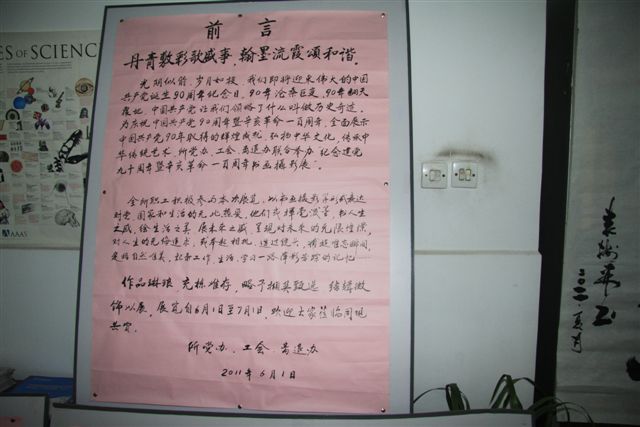 ES OF SCIENCE
AAAS
前言
丹青敷彩歌盛事，翰墨流霞颂和谐。
光阴似箭，岁月如梭，我们即将迎来伟大的中国
共产党诞生90周年纪念日，90年沧桑巨变，90年翻天
覆地，中国共产党让我们领略了什么叫做历史奇迹。
为庆祝中国共产党90周年暨辛亥革命一百周年，全面展示
中国共产党90年取得的辉煌成就，弘扬中华文化，传承中
华传统艺术，所党办、工会、离退办联合举办“纪念建党
九十周年暨辛亥革命一百周年书画摄影展”。
全所职工积极参与本次展览，以书画摄影等形式表达
对党、国家和生活的无比热爱，他们或挥毫泼墨，书人生
之感，绘生活之美，展未来之盛，呈现对未来的无限憧憬，
对人生的无倦追求，或举起相机，透过镜头，捕捉难忘瞬间，
定格自然唯美，记录工作、生活、学习一路
的记忆
作品琳琅，充栋难存，略予
缮缚微
饰以展，展览自6月1日至7月1日，欢迎大家莅临同观
共赏。
所党办、工会、离退办
2011年6月1日